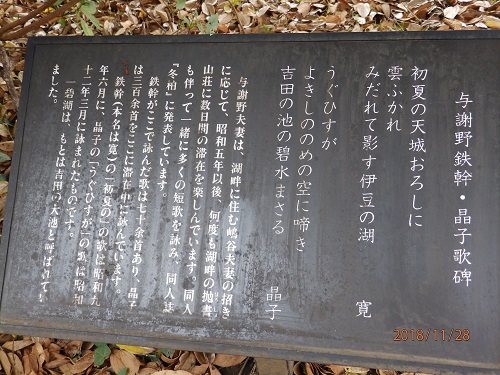 与謝野鉄幹・晶子歌碑
初夏の天城おろしに
雲ふかれ
みだれて影す伊豆の湖
寛
うぐひすが
よきしののめの空に啼き
吉田の池の碧水まさる
晶子
与謝野夫妻は、湖畔に住む嶋谷夫妻の招き
に応じて、昭和五年以後、何度も湖畔の抛書
山荘に数日間の滞在を楽しんでいます。同人
も伴って一緒に多くの短歌を詠み、同人誌
『冬柏』に発表しています。
鉄幹がここで詠んだ歌は七十余首あり、晶子
は三百余首をここに滞在中に詠んでいます。
鉄幹(本名は寛)の「初夏の」の歌は昭和九
年六月に、晶子の「うぐひすが」の歌は昭和
十二年三月に詠まれたものです。
一碧湖は、もとは吉田の大池と呼ばれてい
ました。
2018/11/28